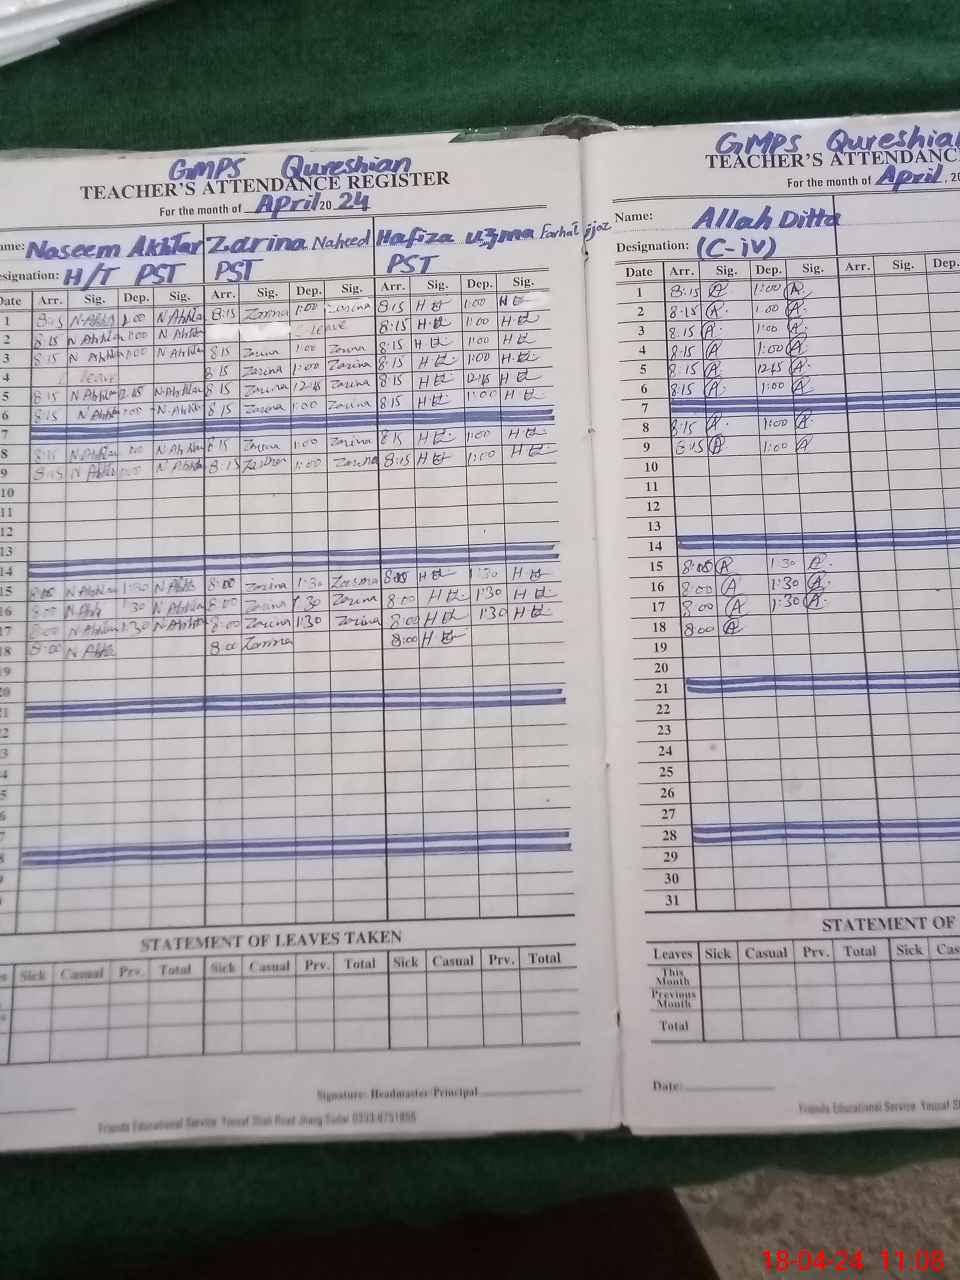 GMPS Qureshian
TEACHER'S ATTENDANCE REGISTER
For the month of April 20 24
Naseem Akhtar Zarina Naheed Hafiza uzma Farhat ijaz
Designation: H/T PST PST PST
Date Arr. Sig. Dep. Sig. Arr. Sig. Dep. Sig. Arr. Sig. Dep. Sig.
1 8:15 N Akhtar 1:00 N Akhtar 8:15 Zarina 1:00 Zarina 8:15 1:00
2 8:15 N Akhtar 1:00 N Akhtar leave 8:15 1:00
3 8:15 N Akhtar 1:00 N Akhtar 8:15 Zarina 1:00 Zarina 8:15 1:00
4 leave 8:15 Zarina 1:00 Zarina 8:15 1:00
5 8:15 N Akhtar 12:45 N Akhtar 8:15 Zarina 12:45 Zarina 8:15 12:45
6 8:15 N Akhtar 1:00 N Akhtar 8:15 Zarina 1:00 Zarina 8:15 1:00
7
8 8:15 N Akhtar N Akhtar 8:15 Zarina 1:00 Zarina 8:15 1:00
9 8:15 N Akhtar 1:00 N Akhtar 8:15 Zarina 1:00 Zarina 8:15 1:00
10
11
12
13
14
15 8:00 N Akhtar 1:30 N Akhtar 8:00 Zarina 1:30 Zarina 8:00 1:30
16 8:00 N Akhtar 1:30 N Akhtar 8:00 Zarina 1:30 Zarina 8:00 1:30
17 8:00 N Akhtar 1:30 N Akhtar 8:00 Zarina 1:30 Zarina 8:00 1:30
18 8:00 N Akhtar 8:00 Zarina 8:00
STATEMENT OF LEAVES TAKEN
Sick Casual Prv. Total Sick Casual Prv. Total Sick Casual Prv. Total
Signature: Headmaster/Principal
Friends Educational Service Yousaf Shah Road Jhang Sadar
GMPS Qureshian
TEACHER'S ATTENDANCE
For the month of April, 20
Name: Allah Ditta
Designation: (C-iv)
Date Arr. Sig. Dep. Sig. Arr. Sig. Dep.
1 8:15 A 1:00 A
2 8:15 A 1:00 A
3 8:15 A 1:00 A
4 8:15 A 1:00 A
5 8:15 A 12:45 A
6 8:15 A 1:00 A
7
8 8:15 A 1:00 A
9 8:15 A 1:00 A
10
11
12
13
14
15 8:00 A 1:30 A
16 8:00 A 1:30 A
17 8:00 A 1:30 A
18 8:00 A
19
20
21
22
23
24
25
26
27
28
29
30
31
STATEMENT OF
Leaves Sick Casual Prv. Total Sick Cas
This Month
Previous Month
Total
Date:
Friends Educational Service Yousaf S
18-04-24 11:08